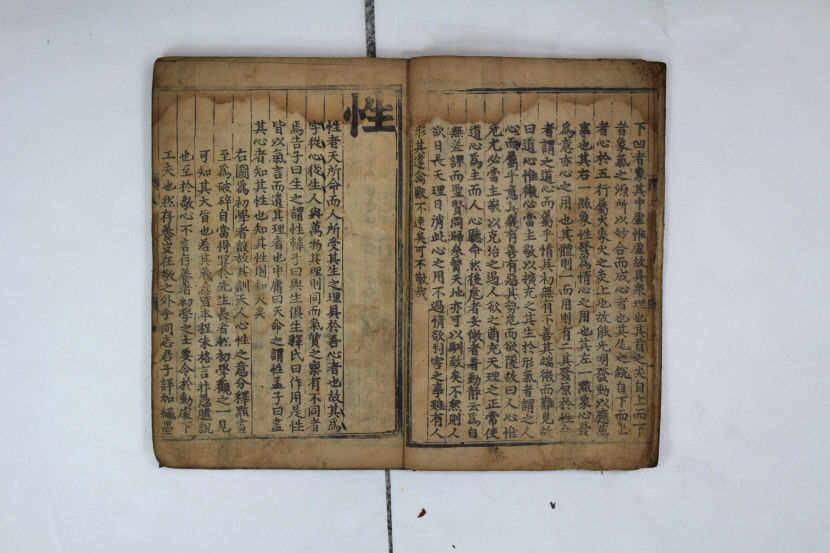 下凹者象其中虛惟虛故具衆理也其首之尖自上而下
昔象氣之源所以妙合而成心者也其尾之銳自下而上
者心於五行屬火象火之炎上也故能光明發動以應萬
事也其右一點象性發爲情心之用也其左一點象心發
爲意亦心之用也其體則一而用則有二其發原於性命
者謂之道心而屬乎情其初無有不善其端微而難見故
曰道心惟微必當主敬以擴充之其生於形氣者謂之人
心而屬乎意其幾有善有惡其勢危而欲墜故曰人心惟
危尤必當主敬以克治之遏人欲之萌充天理之正常使
道心爲主而人心聽命然後危者安微者著動靜云爲自
無差謬而聖賢同歸參贊天地亦可以馴致矣不然則人
欲日長天理日消此心之用不過情欲利害之事雖有人
形其違禽獸不遠矣可不敬哉
性
性者天所命而人所受其生之理具於吾心者也故其爲
字從心從生人與萬物其理則同而氣質之稟有不同者
焉告子曰生之謂性韓子曰與生俱生釋氏曰作用是性
皆以氣言而遺其理者也中庸曰天命之謂性孟子曰盡
其心者知其性也知其性則知天矣
右圖爲初學者設故其訓天人心性之意分釋點畫
至爲破碎自當得罪於先生長者然初學觀之一見
可知其大旨也若其義意皆本程朱格言非愚臆說
也至於敬心不言存養者初學之士要令於動處下
工夫也然存養豈在敬之外乎同志君子詳加繩墨